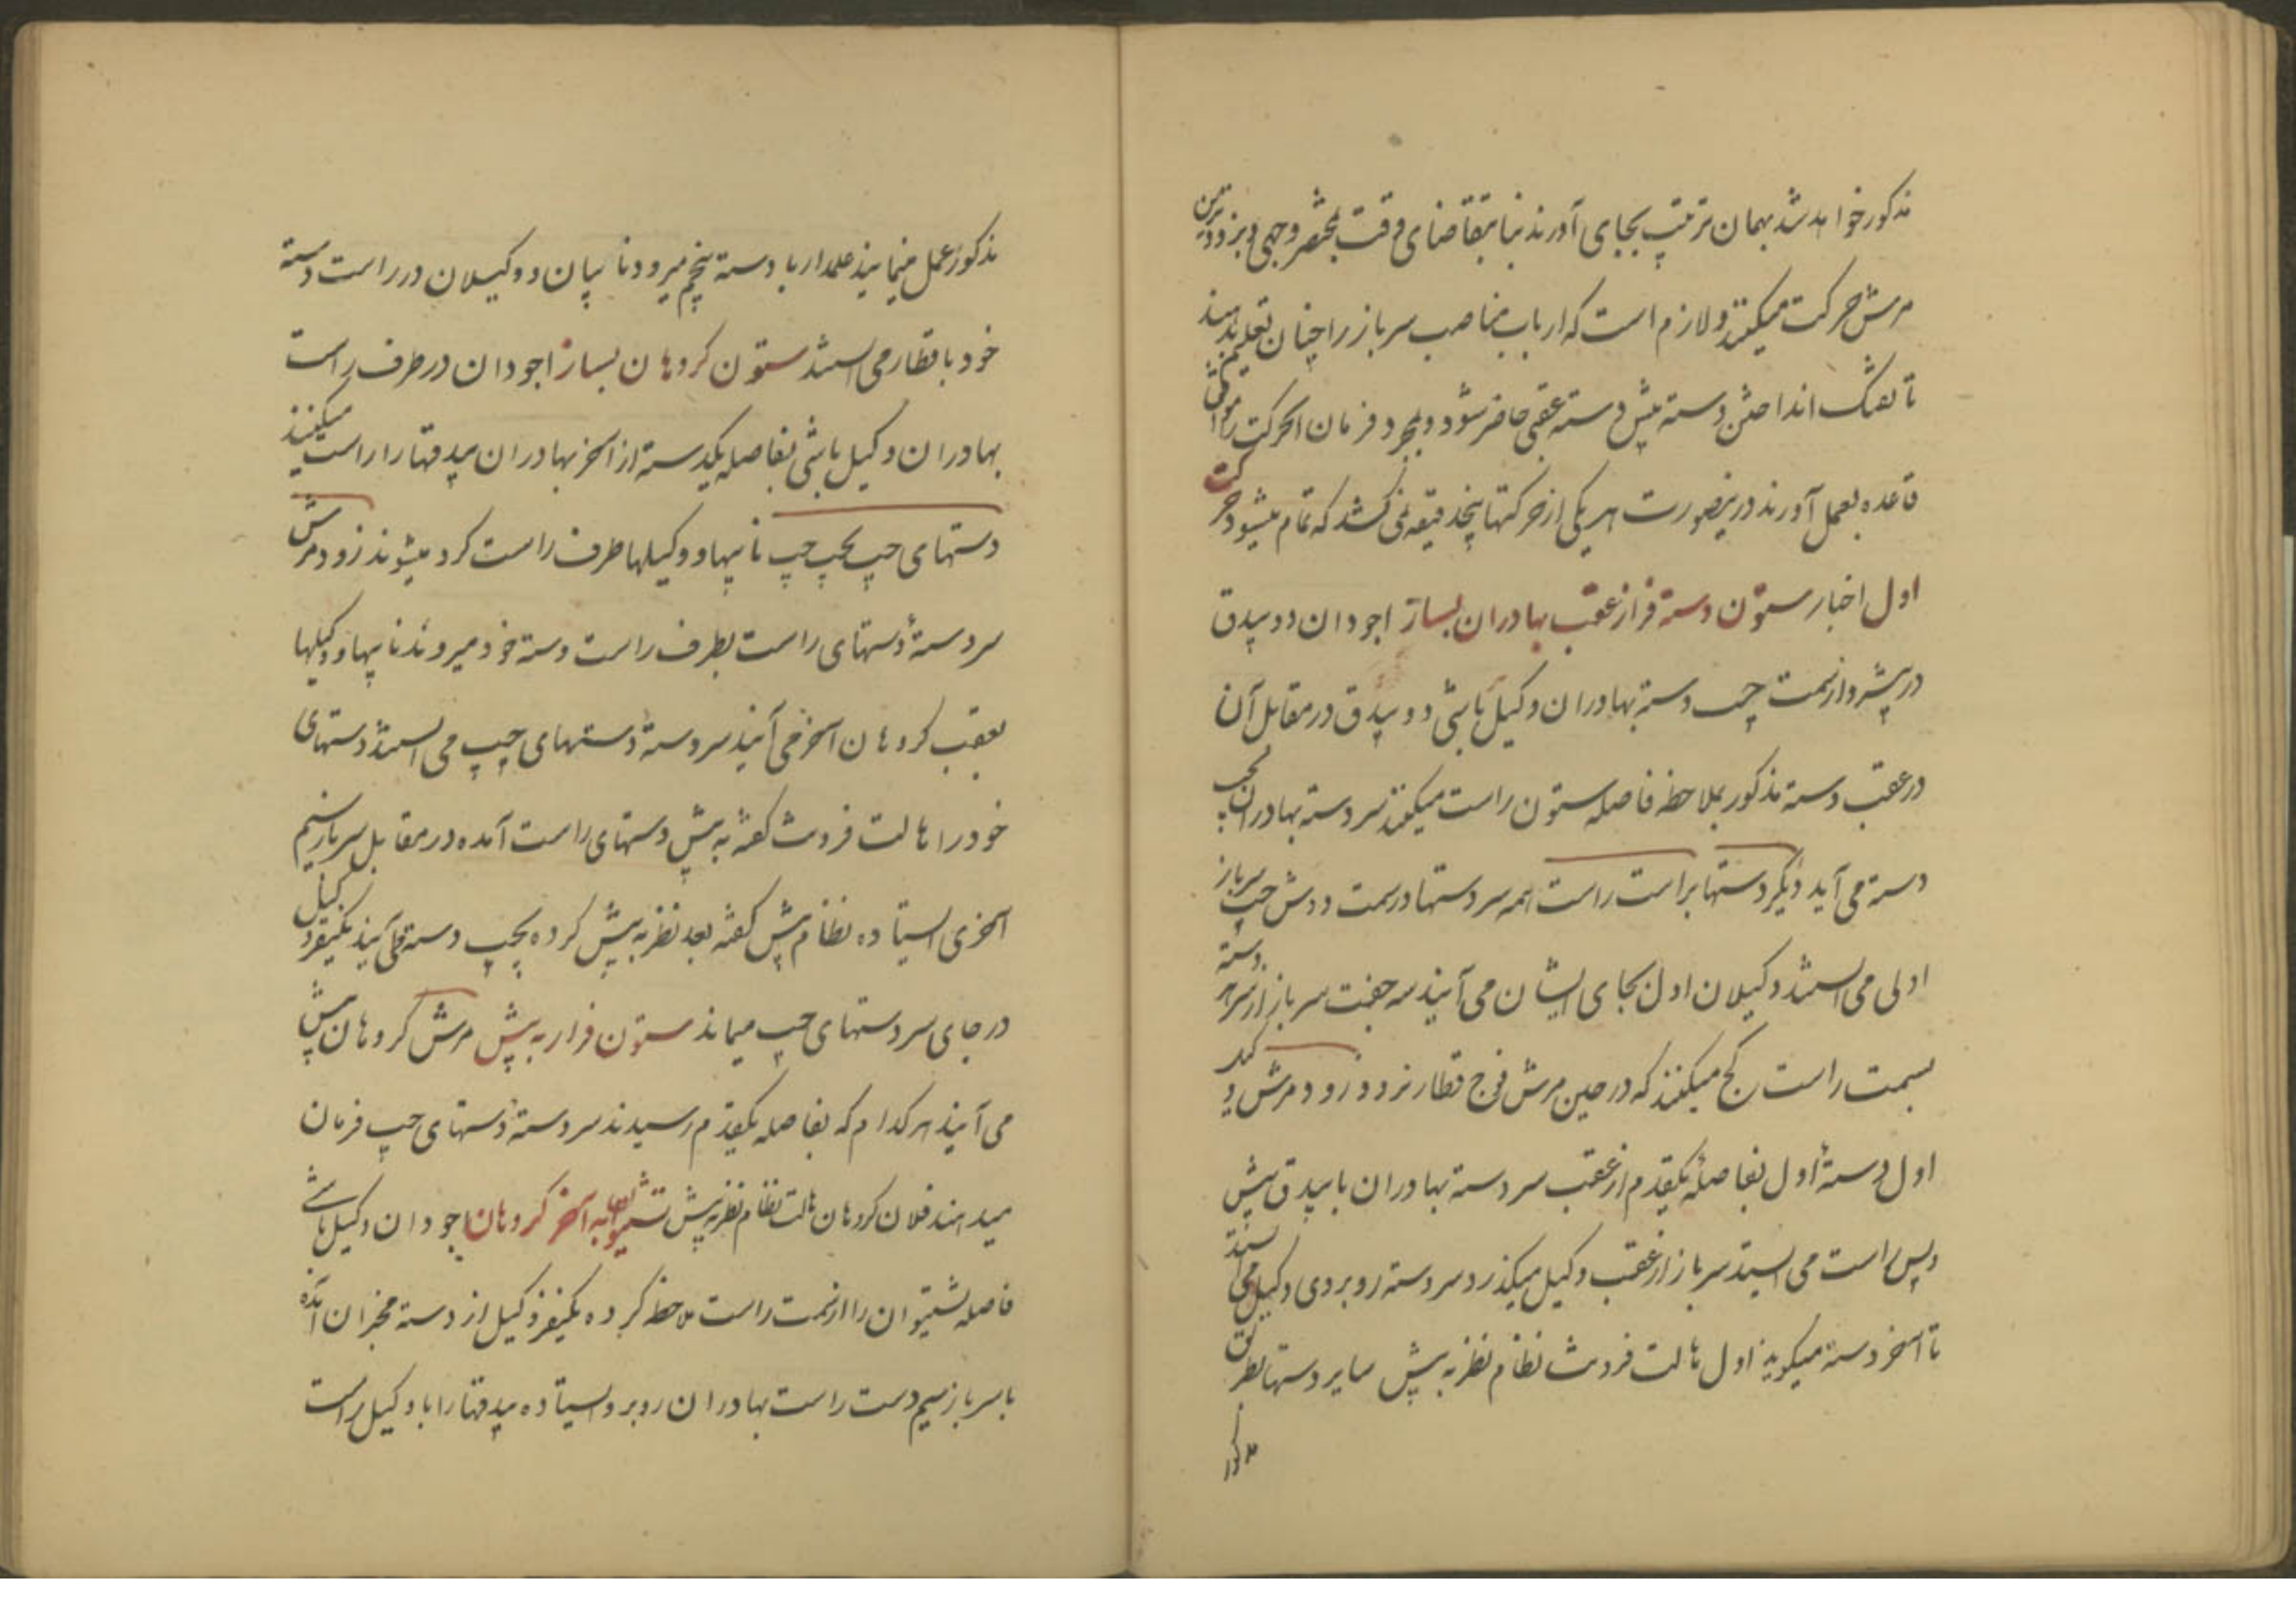 مذکور خواهد شد بهمان ترتیب بجای آورند بنا بتقاضای وقت بمختصر وجهی و بزودترین
مرش حرکت میکنند و لازم است که ارباب مناصب سرباز را چنان تعلیم بدهند
تا تفنک انداختن دسته پیش دسته عقبی حاضر شود و بمجرد فرمان الحرکت موافق
قاعده بعمل آورند درینصورت هریکی از حرکتها پنجدقیقه نمی کشد که تمام میشود حرکت
اول اخبار ستون دسته فراز عقب بهادران بساز اجودان دو بیدق
در پیشرو از سمت چپ دسته بهادران وکیل باشی دو بیدق در مقابل آن
در عقب دسته مذکور بملاحظه فاصله ستون راست میکنند سر دسته بهادران بچپ
دسته می آید دیگر دستها براست راست همه سر دستها در سمت دوش چپ سرباز
اولی می ایستند وکیلان اول بجای ایشان می آیند سه جفت سرباز از سر هر دسته
بسمت راست کج میکنند که در حین مرش فوج قطار نرود زود مرش
اول دسته اول بفاصله یکقدم از عقب سر دسته بهادران با بیدق پیش
و پس راست می ایستد سرباز از عقب وکیل میکذرد سر دسته روبروی وکیل می ایستد
تا آخر دسته میکوید اول هالت فرونت نظام نظر به پیش سایر دستها بطریق
مذکور
مذکور عمل مینمایند علمدار با دسته پنجم میرود نایبان و وکیلان در راست دسته
خود با قطار می ایستند ستون کروهان بساز اجودان در طرف راست
بهادران وکیل باشی بفاصله یکدسته از آخر بهادران بیدقها را راست میکنند
دستهای چپ بچپ چپ نایبها و وکیلها طرف راست کرد میشوند زود مرش
سر دسته دستهای راست بطرف راست دسته خود میروند نایبها و وکیلها
بعقب کروهان آخر می آیند سر دسته دستهای چپ می ایستند دستهای
خود را هالت فرونت کفته به پیش دستهای راست آمده در مقابل سرباز سیم
آخری ایستاده نظام پیش کفته بعد نظر به پیش کرده بچپ دسته می آیند یکنفر وکیل
در جای سر دستهای چپ میماند ستون فرار به پیش مرش کروهان پیش
می آیند هر کدام که بفاصله یکقدم رسیدند سر دسته دستهای چپ فرمان
میدهند فلان کروهان هالت نظام نظر به پیش به آخر کروهان اجودان وکیل باشی
فاصله را از سمت راست ملاحظه کرده یکنفر وکیل از دسته مخبران آمده
با سرباز سیم دست راست بهادران روبرو ایستاده بیدقها را با وکیل راست